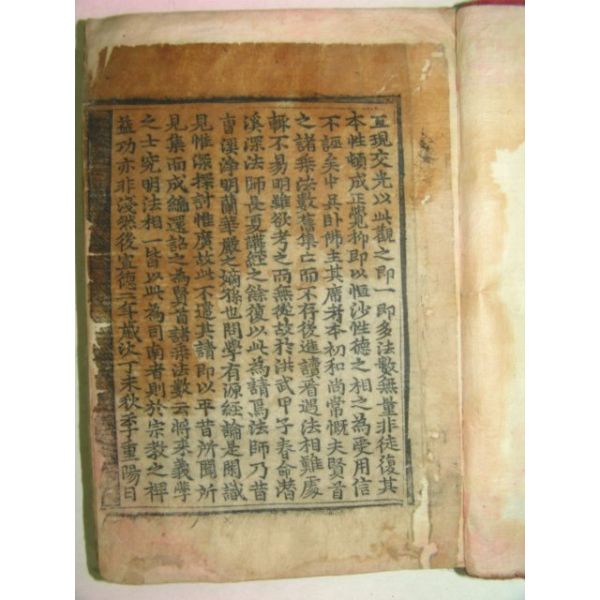 互現交光以此觀之即一即多法數無量非徒復其
本性頓成正覺抑即以恒沙性德之相之為受用信
不誣矣中吳臥佛主其席者本初和尚常慨夫賢首
之諸乘法數舊集亡而不存後進讀者遇法相難處
輒不易明雖欲考之而無從故於洪武甲子春命潜
溪深法師長夏講經之餘復以此為請焉法師乃昔
曹溪淨明蘭華嚴之嫡猶也問學有源經論是閑識
見惟深探討惟廣故此不違其請即以平昔所聞所
見集而成編還諮之為賢首諸乘法數云將來義學
之士究明法相一皆以此為司南者則於宗教之裨
益功亦非淺然後宣德二年歲次丁未秋季重陽日